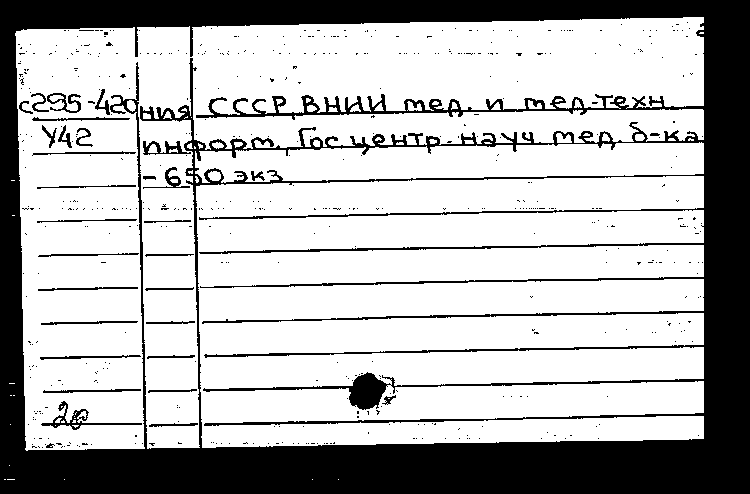 с295-420 ния СССР, ВНИИ мед. и мед-техн.
У42 информ., Гос центр. науч. мед. б-ка
- 650 экз